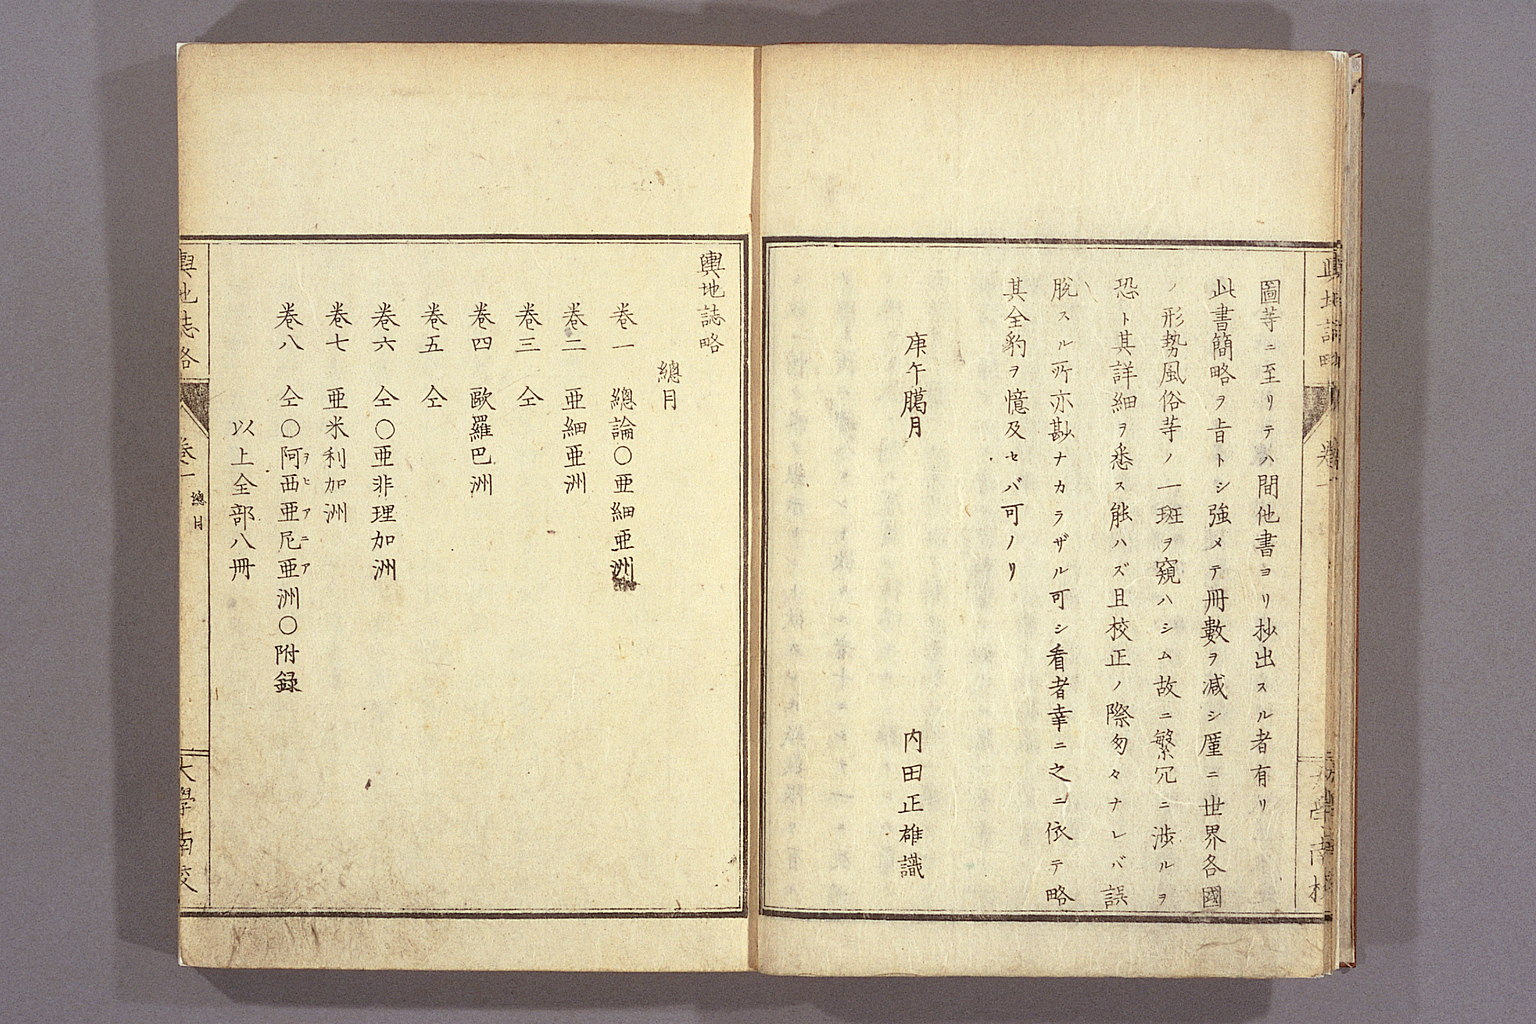 圖等ニ至リテハ間他書ヨリ抄出スル者有リ
此書簡略ヲ旨トシ強メテ冊數ヲ减シ厪ニ世界各國
ノ形勢風俗等ノ一班ヲ窺ハシム故ニ繁冗ニ渉ルヲ
恐ト其詳細ヲ悉ス能ハズ且校正ノ際匆々ナレバ誤
脫スル所亦尠ナカラザル可シ看者幸ニ之ニ依テ略
其全豹ヲ憶及セバ可ノリ
庚午臈月
内田正雄識
輿地誌略
總目
卷一 總論〇亜細亜洲
卷二 亜細亜洲
卷三 仝
卷四 歐羅巴洲
卷五 仝
卷六 仝〇亜非理加洲
卷七 亜米利加洲
卷八 仝〇阿西亜尼亜洲〇附録
ヲヒアニア
以上全部八冊
輿地誌略
卷一
總目
大學南校